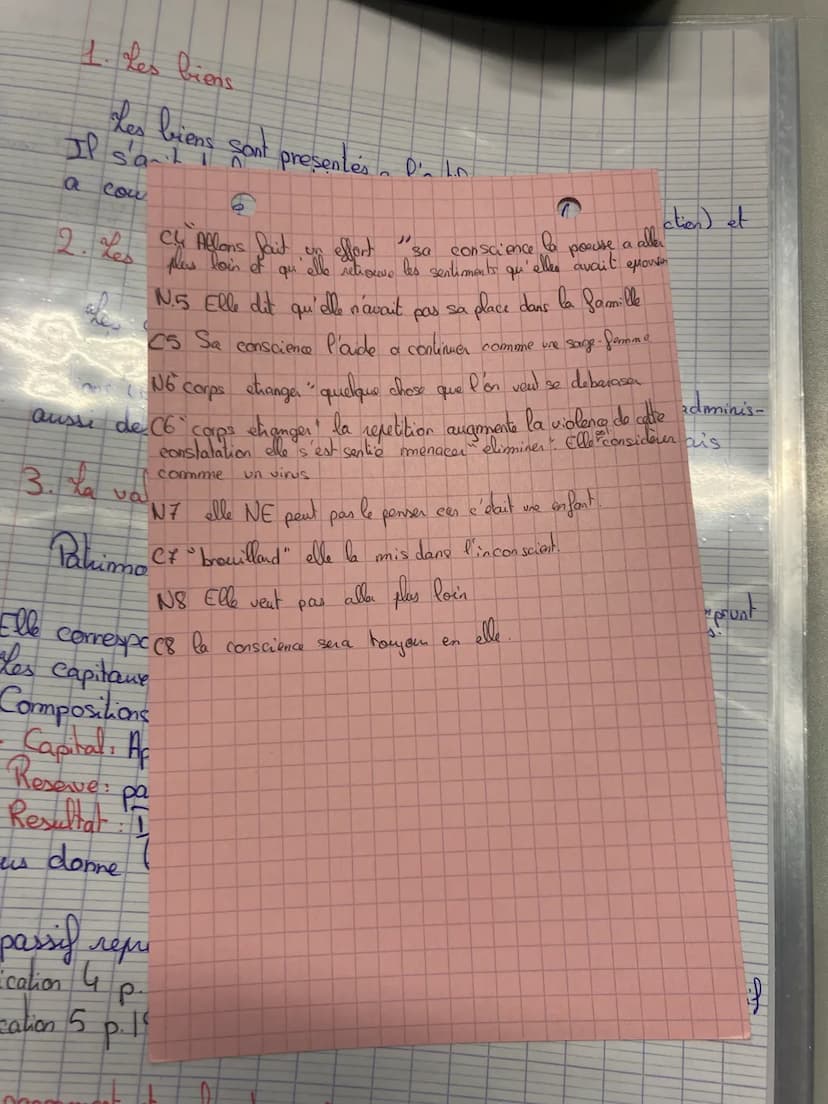 1. Les biens
Les biens sont presentés
Il s'agit
a cou
ction) et
2. Les
C4 "Allons fait un effort "sa conscience la pousse a aller
plus loin et qu'elle retrouve les sentiments qu'elles avait
N.5 Elle dit qu'elle n'avait pas sa place dans la famille
C5 Sa conscience l'aide a continuer comme une sage-femme
N6 "corps etranger" quelque chose que l'on veut se debarasser
C6 "corps etranger" la repetition augmente la violence de cette
constatation elle s'est sentie menacer "eliminer". Elle considerer
comme un virus
N7 elle NE peut pas le penser car c'était une enfant.
C7 "brouillard" elle la mis dans l'inconscient.
N8 Elle veut pas aller plus loin
C8 la conscience sera toujour en elle.
aussi de
adminis-
ais
3. La va
Patrimo
Elle correspo
prunt
Les capitaux
Compositions
Capital: Ap
Reserve: pa
Resultat:
us donne
passif repr
ication 4 p.
cation 5 p.19